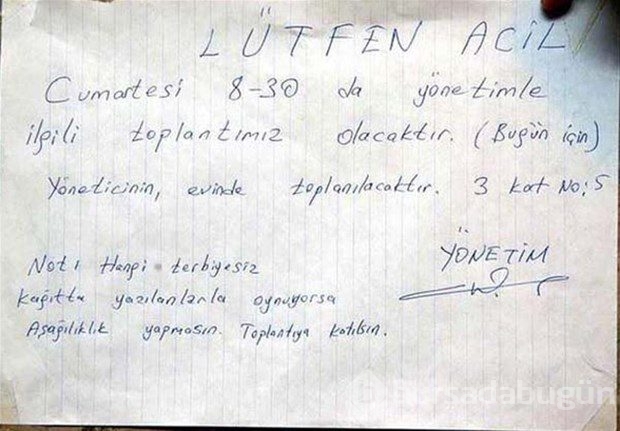 LÜTFEN ACİL
Cumartesi 8-30 da yönetimle
ilgili toplantımız olacaktır. (Bugün için)
Yöneticinin, evinde toplanılacaktır. 3 kat No: 5
YÖNETİM
Not: Hangi terbiyesiz
kağıtta yazılanlarla oynuyorsa
Aşağılıklık yapmasın. Toplantıya katılsın.
Bursadabugün